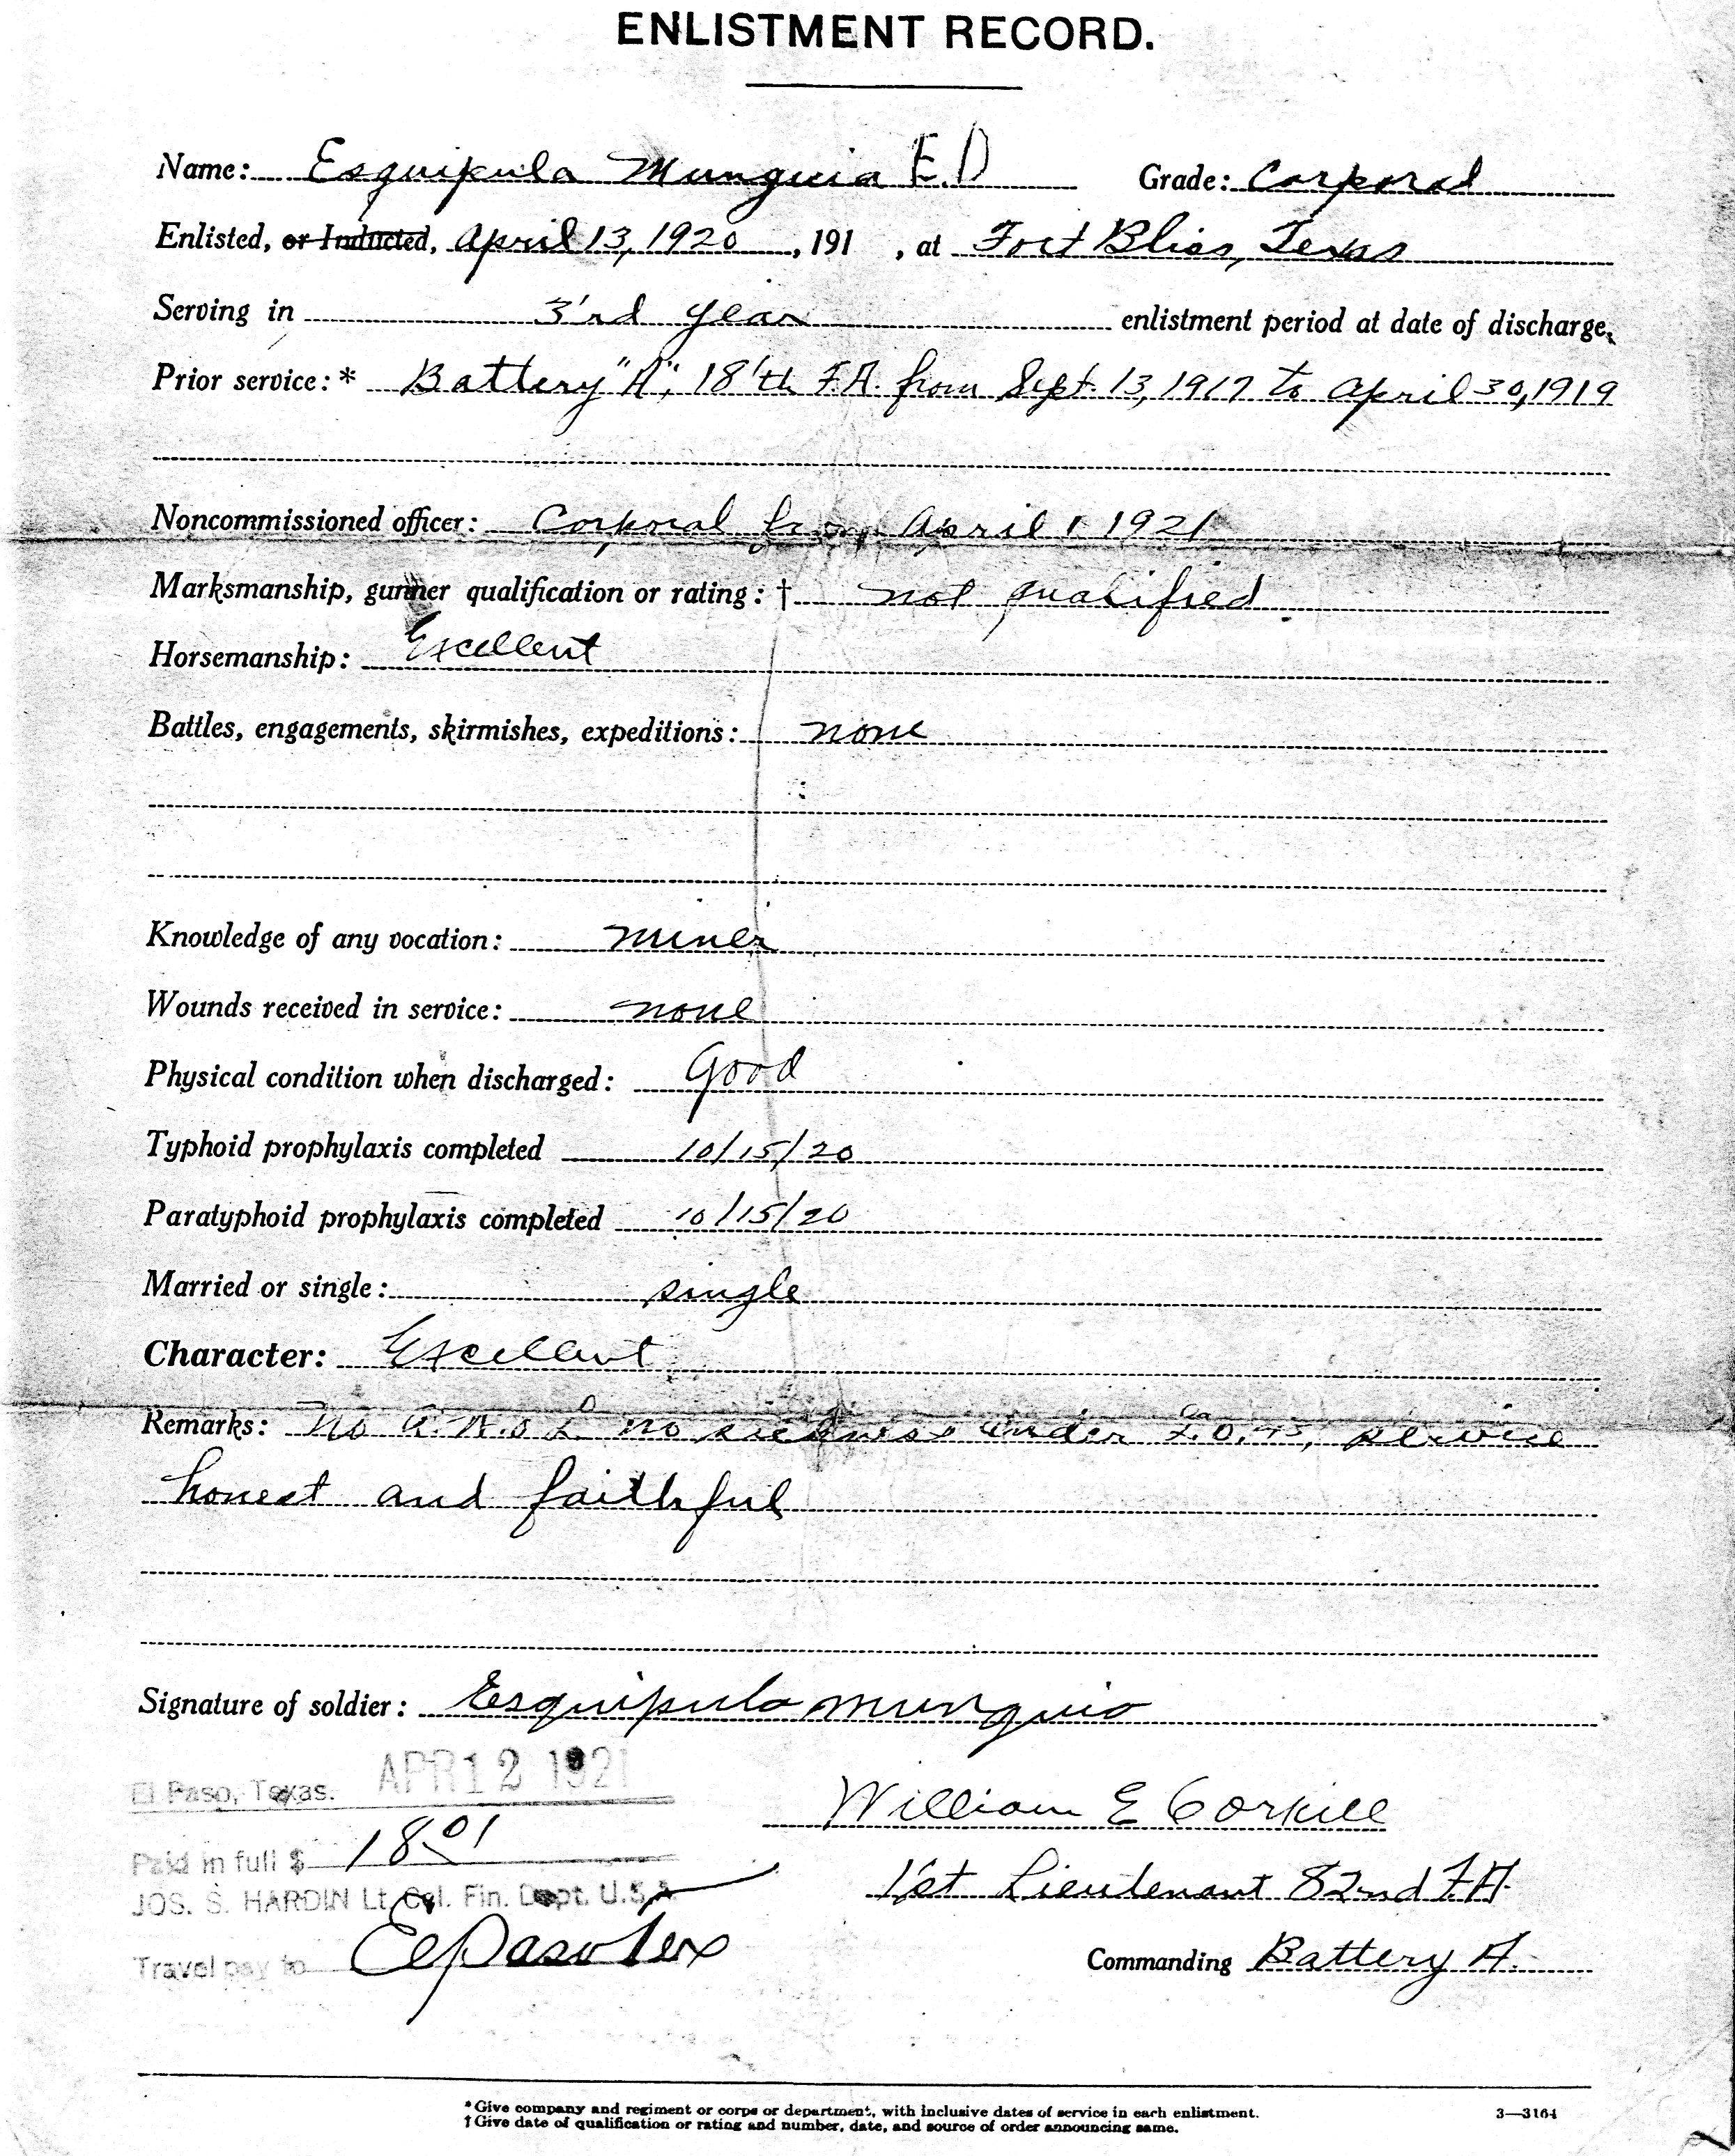 ENLISTMENT RECORD.
Name: Esquipula Munguia E.D Grade: Corporal
Enlisted, or Inducted, April 13, 1920, 191 , at Fort Bliss, Texas
Serving in 3'rd year enlistment period at date of discharge.
Prior service:* Battery "A", 18'th F.A. from Sept. 13, 1917 to April 30, 1919
Noncommissioned officer: Corporal from April 1 1921
Marksmanship, gunner qualification or rating:† not qualified.
Horsemanship: Excellent
Battles, engagements, skirmishes, expeditions: none
Knowledge of any vocation: miner
Wounds received in service: none
Physical condition when discharged: Good
Typhoid prophylaxis completed 10/15/20
Paratyphoid prophylaxis completed 10/15/20
Married or single: single
Character: Excellent
Remarks: No A.W.O.L. no sickness under service
honest and faithful
Signature of soldier: Esquipula Munguia
El Paso, Texas. APR 12 1921
William E Corkill
Paid in full $ 18.01
1st Lieutenant 82nd F.A.
JOS. S. HARDIN Lt. Col. Fin. Dept. U.S.A.
Travel pay to El Paso Tex
Commanding Battery A.
*Give company and regiment or corps or department, with inclusive dates of service in each enlistment. 3—3164
†Give date of qualification or rating and number, date, and source of order announcing same.